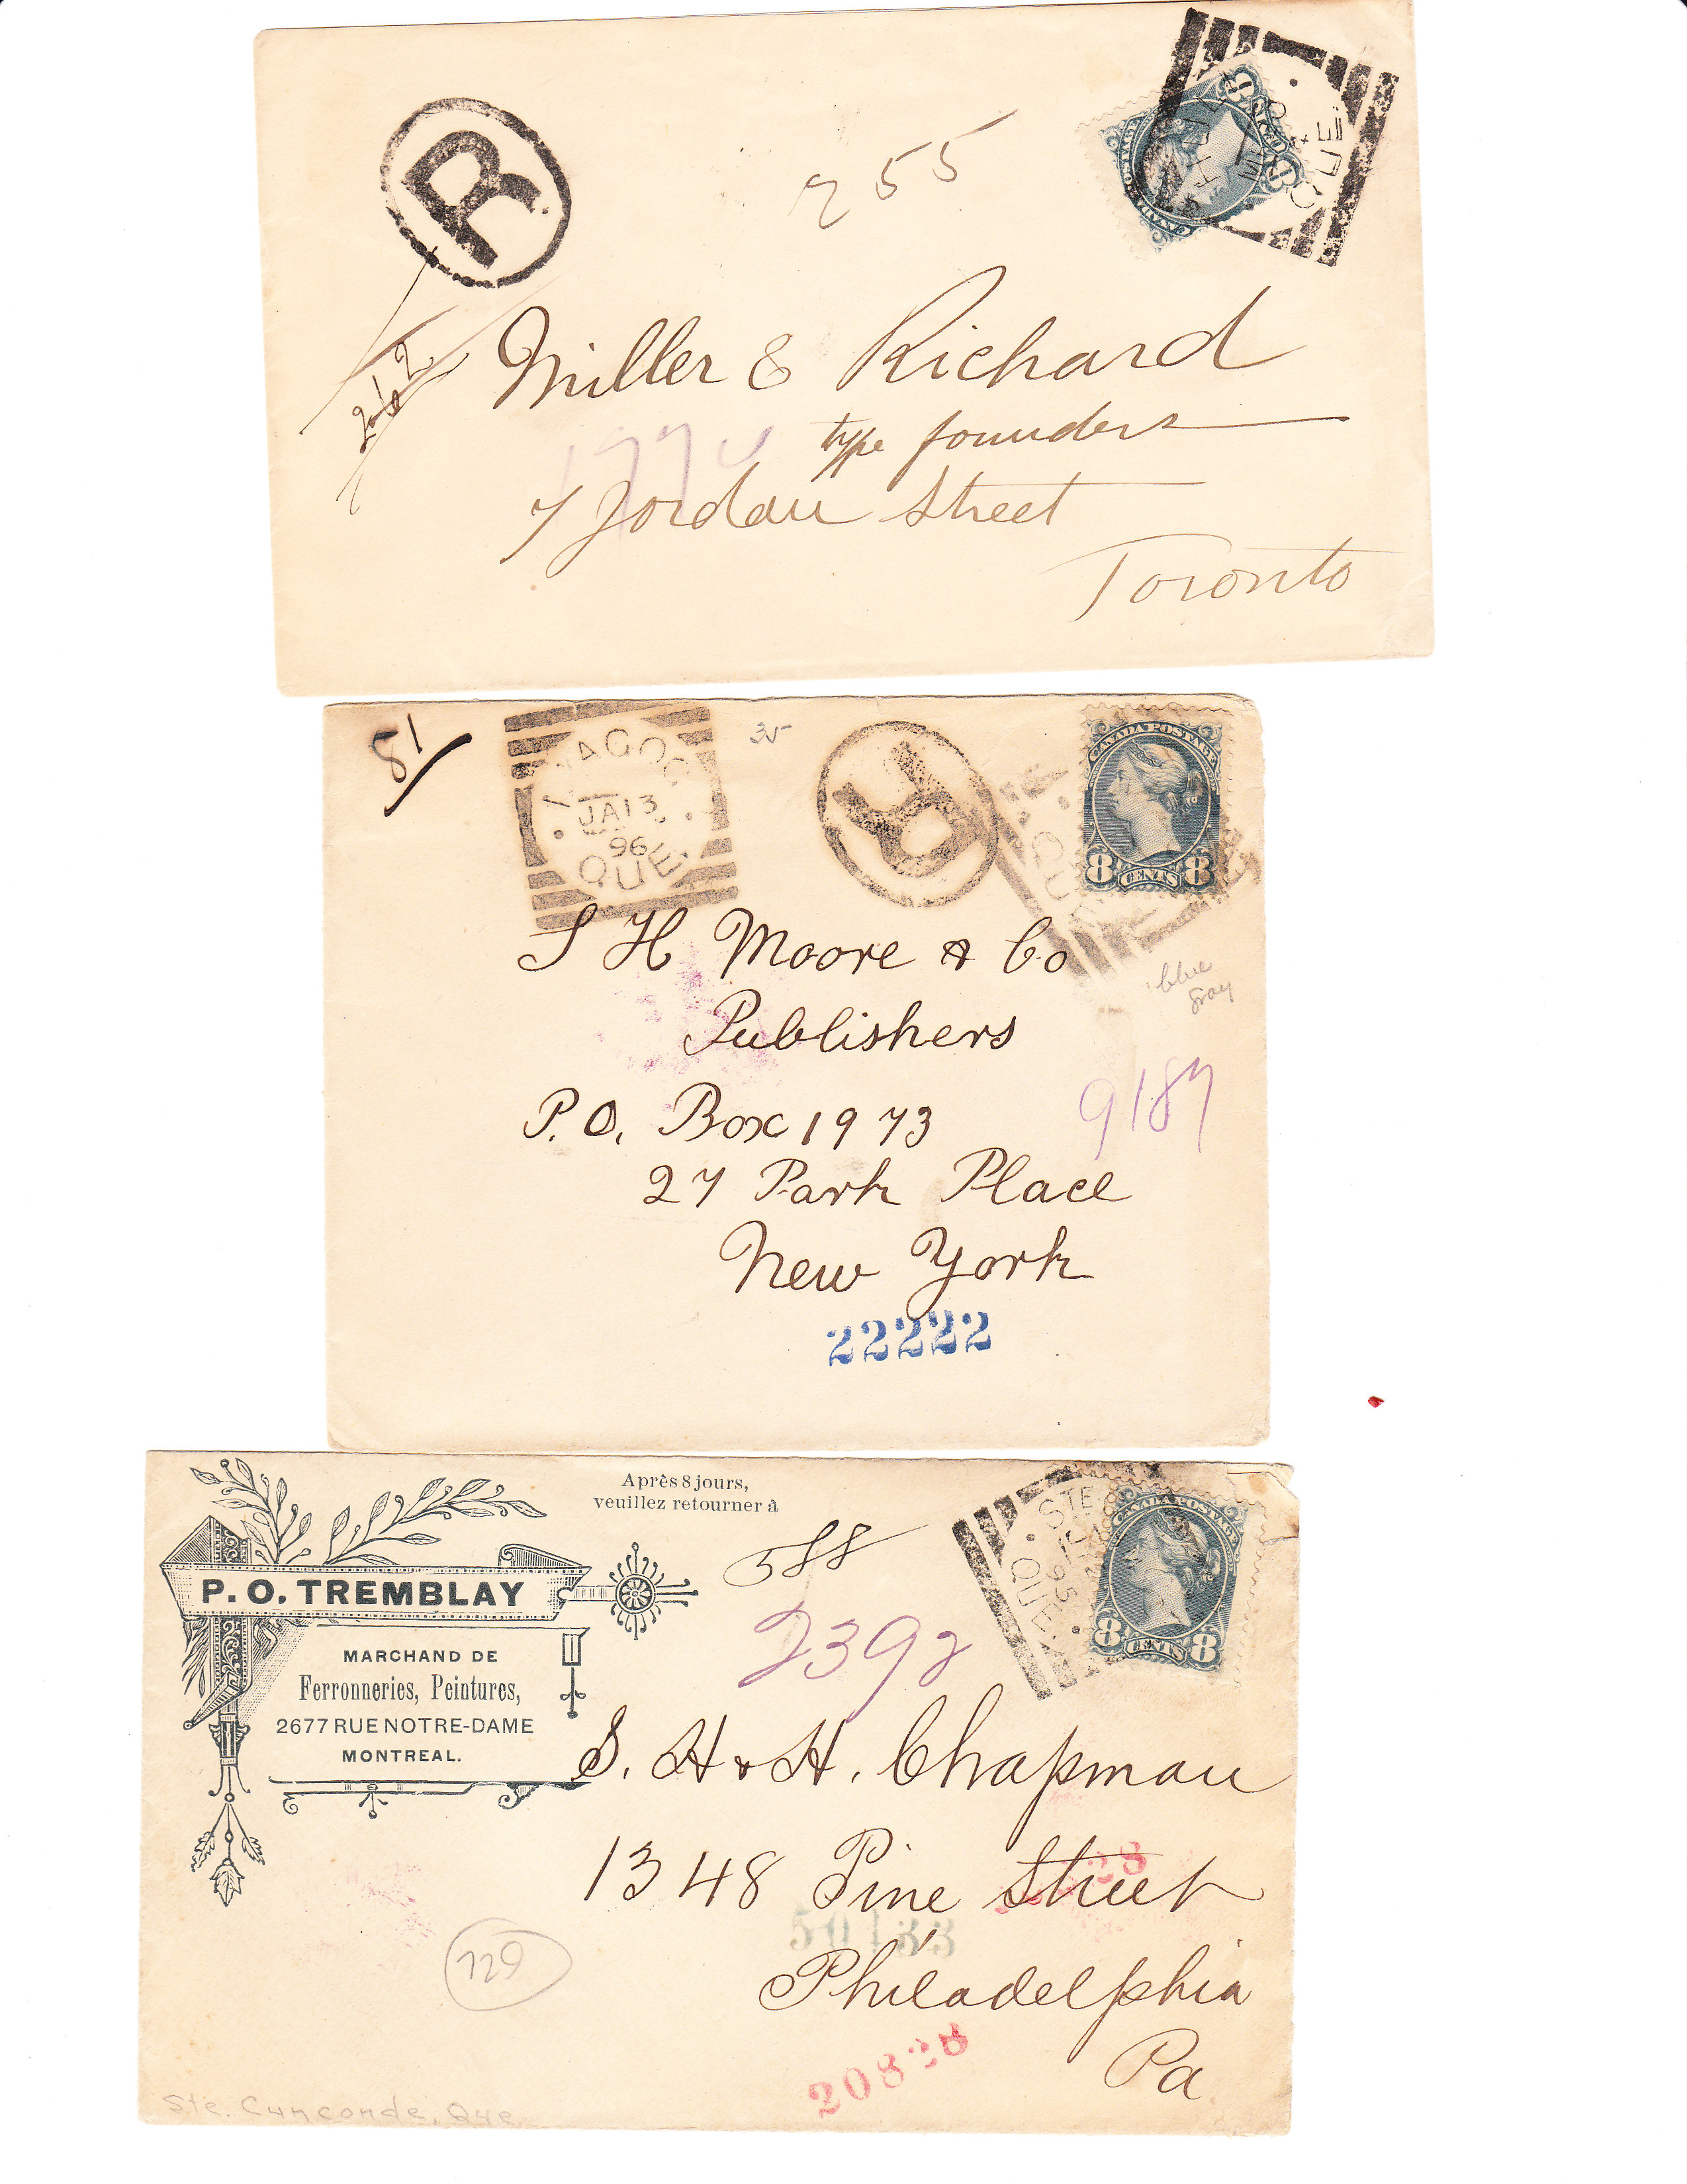 R
255
CANADA POSTAGE
8 CENTS 8
HULL
QUE
262
Miller & Richard
type founders
1770
7 Jordan Street
Toronto
81
MAGOG
JA 13
96
QUE
35
R
CANADA POSTAGE
8 CENTS 8
QUE
S H Moore & Co
blue
gray
Publishers
9187
P.O. Box 1973
27 Park Place
New York
22222
Après 8 jours,
veuillez retourner à
588
STE
95
QUE.
CANADA POSTAGE
8 CENTS 8
P. O. TREMBLAY
2392
MARCHAND DE
Ferronneries, Peintures,
2677 RUE NOTRE-DAME
MONTREAL.
S. H & H. Chapman
1348 Pine Street
50133
729
Philadelphia
20828
Pa
Ste. Cunconde, Que